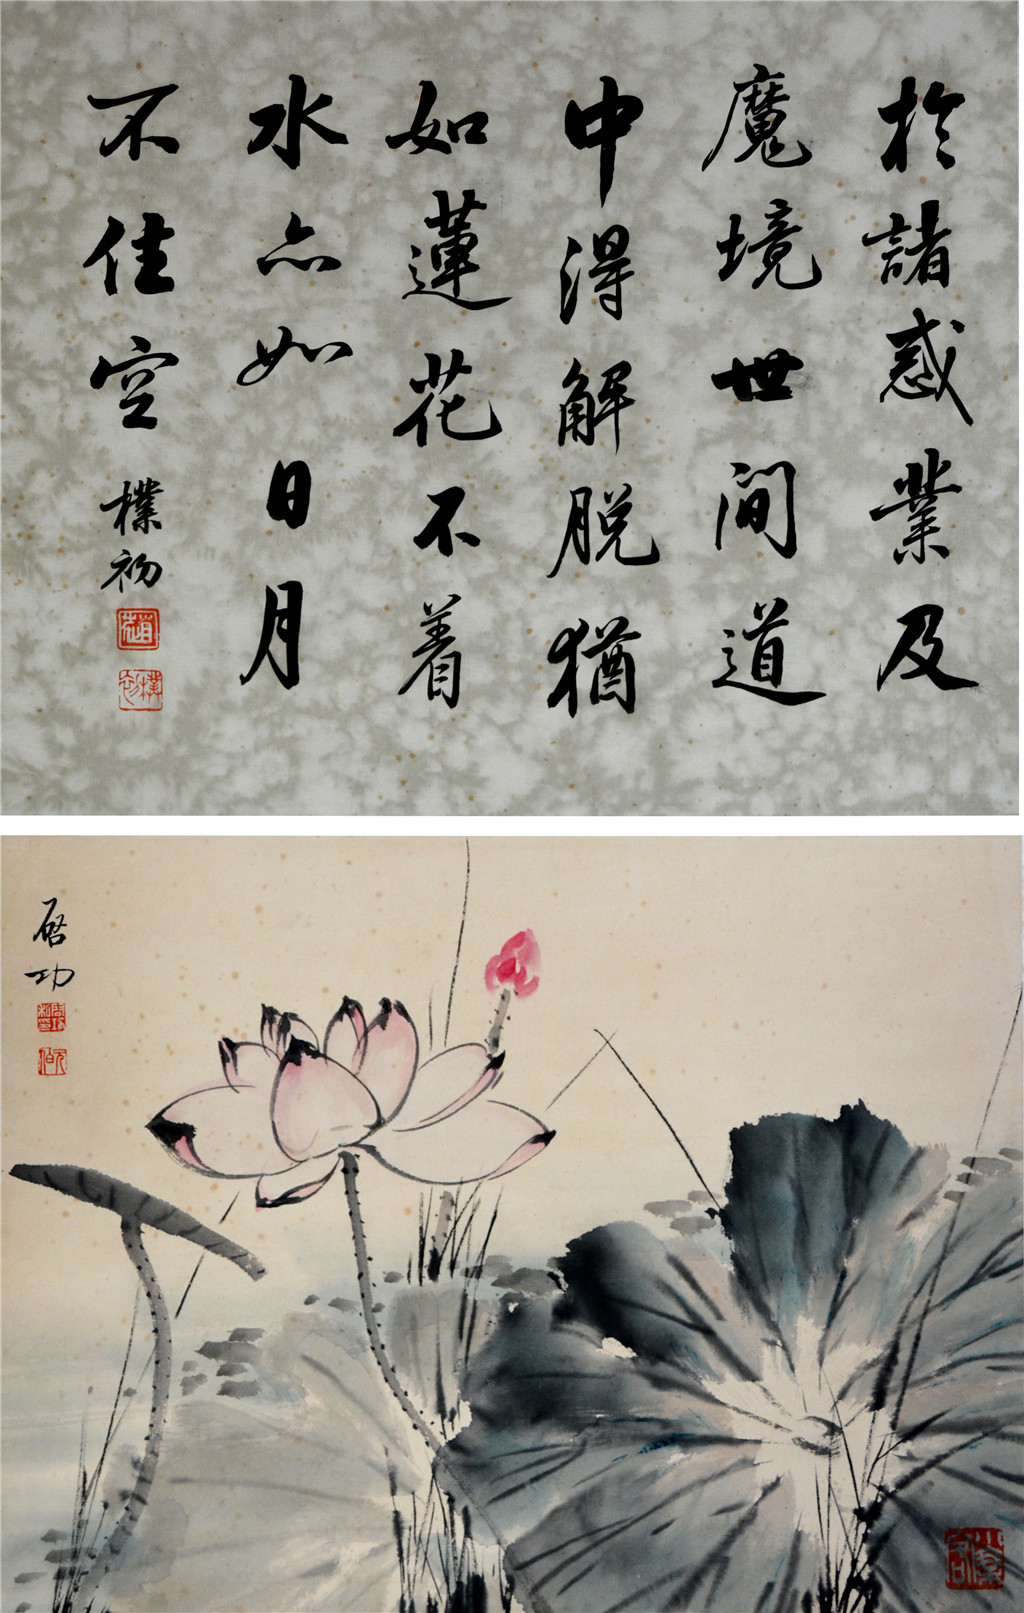 於諸惑業及
魔境世间道
中得解脱猶
如蓮花不着
水亦如日月
不住空
樸初
趙
樸初
启功